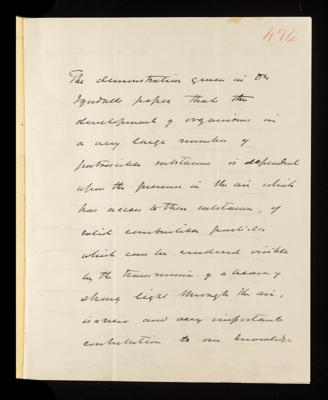 476
The demonstration given in Dr
Tyndall's paper that the
development of organisms in
a very large number of
putrescible substances is dependent
upon the presence in the air which
has access to these substances, of
solid combustible particles
which can be rendered visible
by the transmission of a beam of
strong light through the air,
is a new and very important
contribution to our knowledge